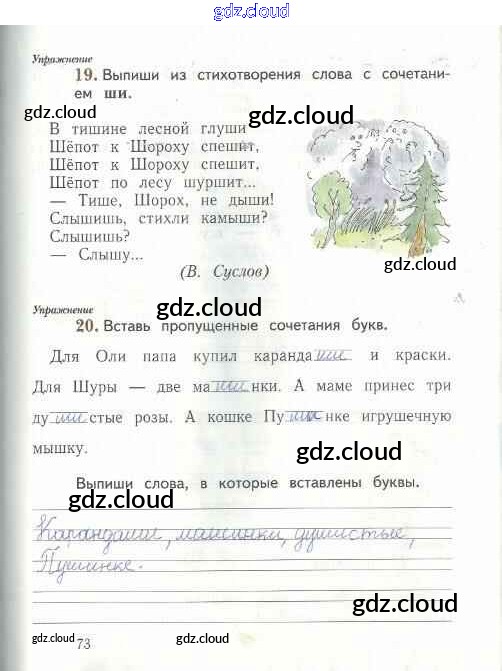 gdz.cloud
Упражнение
19. Выпиши из стихотворения слова с сочетани-
ем ши.
gdz.cloud
В тишине лесной глуши
Шёпот к Шороху спешит,
Шёпот к Шороху спешит,
Шёпот по лесу шуршит...
— Тише, Шорох, не дыши!
Слышишь, стихли камыши?
Слышишь?
— Слышу...
(В. Суслов)
gdz.cloud
gdz.cloud
gdz.cloud
Упражнение
20. Вставь пропущенные сочетания букв.
Для Оли папа купил каранда ши и краски.
Для Шуры — две ма ши нки. А маме принес три
ду ши стые розы. А кошке Пу ши нке игрушечную
мышку.
gdz.cloud
Выпиши слова, в которые вставлены буквы.
gdz.cloud
Карандаши, машинки, душистые,
Пушинке.
gdz.cloud
gdz.cloud
73
gdz.cloud